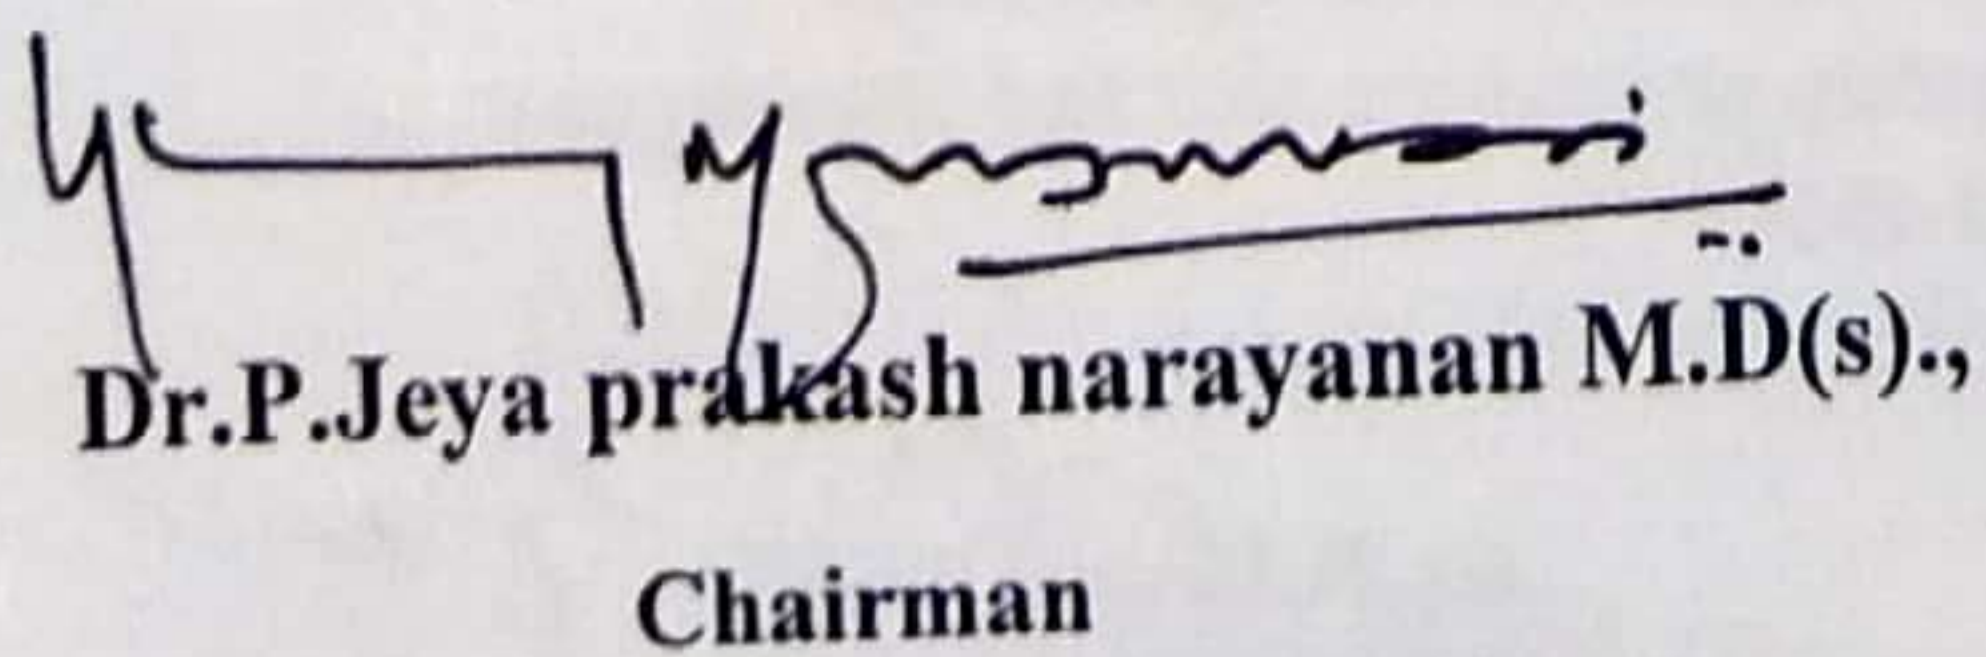 Dr.P.Jeya prakash narayanan M.D(s).,
Chairman